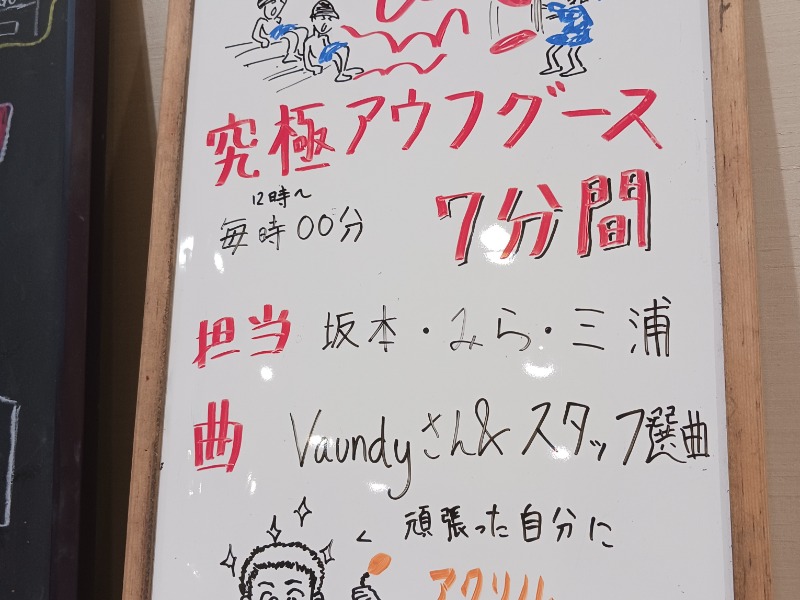 究極アウフグース
12時〜
毎時00分
7分間
担当 坂本・みら・三浦
曲 Vaundyさん&スタッフ選曲
頑張った自分に
アクリル